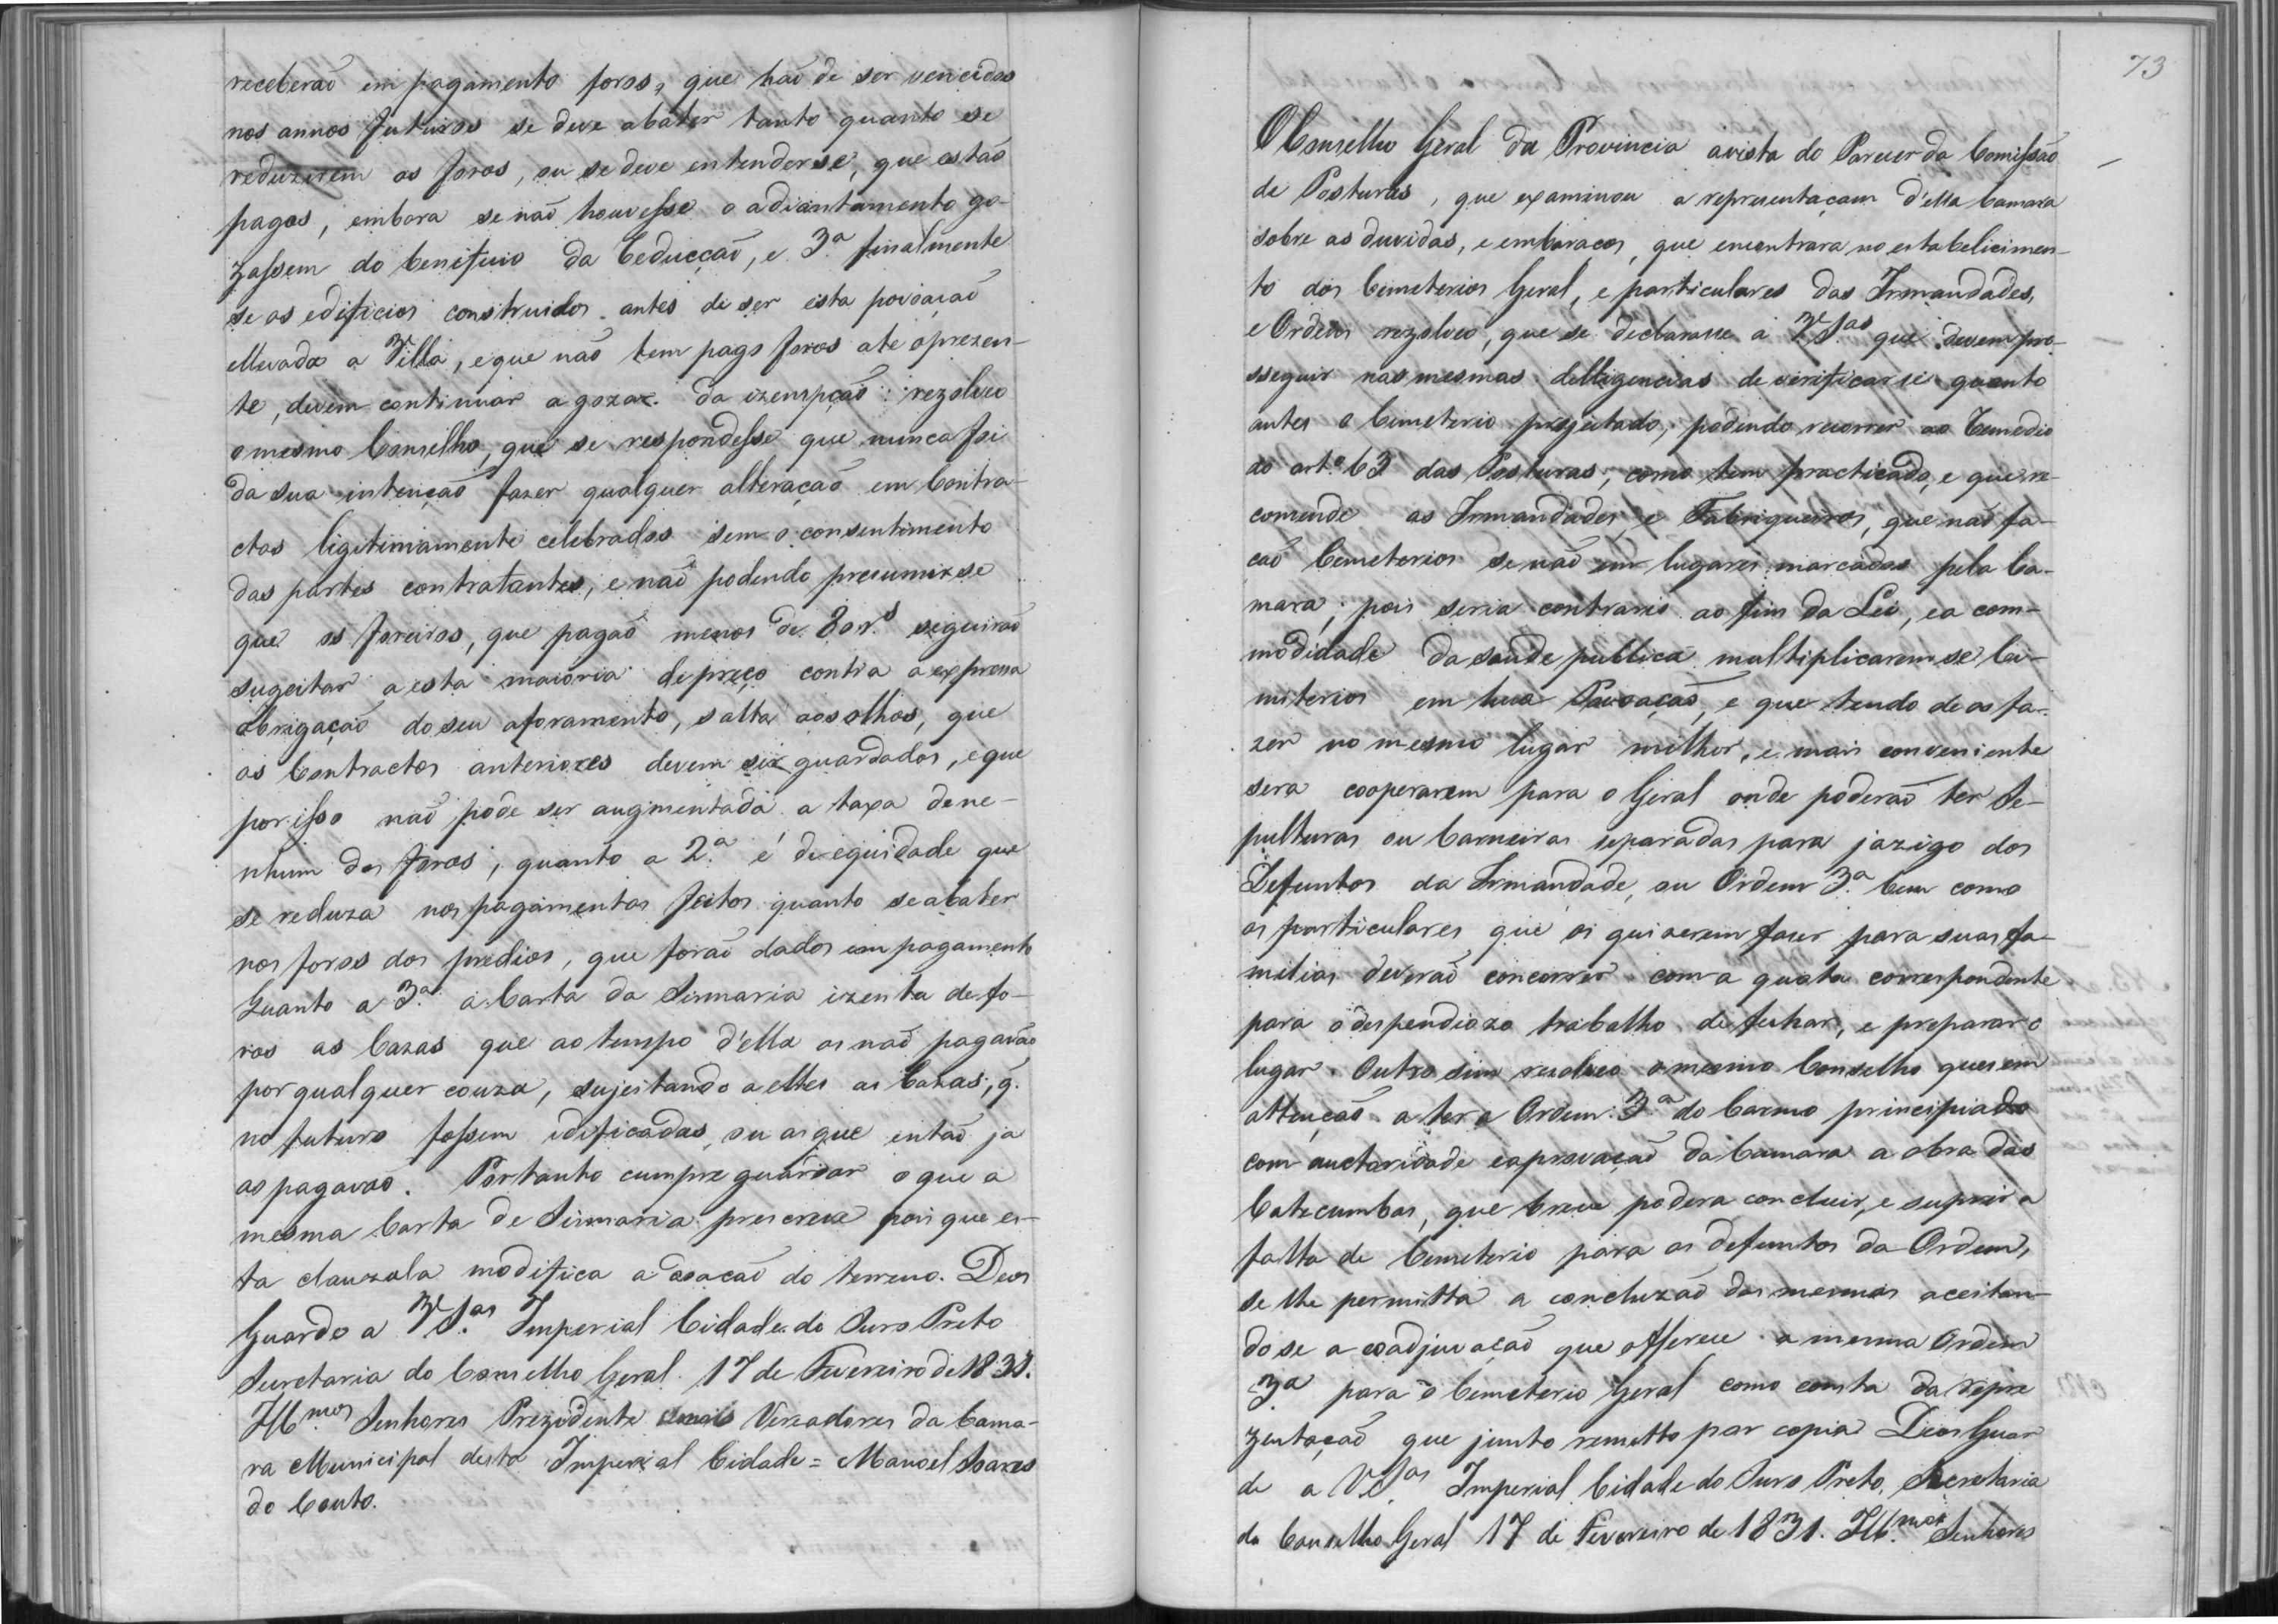 receberaõ em pagamento foros, que haõ de ser vencidos
nos annos futuros se deve abater tanto quanto se
reduzirem os foros, ou se deve entenderse, que estaõ
pagos, embora se naõ houvesse o adiantamento go-
zassem do beneficio da reducçaõ, e 3.ª finalmente
se os edificios construidos antes de ser esta povoaçaõ
ellevada a Villa, e que naõ tem pago foros ate o prezen-
te, devem continuar a gozar da izempçaõ: rezolveo
o mesmo Conselho, que se respondesse que nunca foi
da sua intençaõ fazer qualquer alteraçaõ em Contra-
ctos ligitimamente celebrados sem o consentimento
das partes contratantes, e naõ podendo presumirse
que os foreiros, que pagaõ menos de 80 r.s seguiraõ
sugeitar a esta maioria de preço contra a expressa
obrigaçaõ do seu aforamento, salta aos olhos, que
os Contractos anteriores devem ser guardados, e que
por isso naõ pode ser augmentada a taxa de ne-
nhum dos foros; quanto a 2.ª é de equidade que
se reduza nos pagamentos feitos quanto se abater
nos foros dos predios, que foraõ dados em pagamento
Quanto a 3.ª a Carta da Sismaria izenta de fo-
ros as Cazas que ao tempo d'ella os naõ pagavaõ
por qualquer couza, sujeitando a elles as Cazas, q.
no futuro fossem idificadas, ou as que entaõ ja
os pagavaõ. Portanto cumpre guardar o que a
mesma Carta de Sismaria prescreve pois que es-
ta clauzola modifica a doaçaõ do terreno. Deos
Guarde a V. S.as Imperial Cidade do Ouro Preto
Secretaria do Conselho Geral 17 de Fevereiro de 1831.
Ill.mos Senhores Prezidente e mais Vereadores da Cama-
ra Municipal desta Imperial Cidade = Manoel Soares
do Couto.
73
O Conselho Geral da Provincia avista do Parecer da Comissaõ
de Posturas, que examinou a representaçam d'essa Camara
sobre as duvidas, e embaraços, que encontrara no estabelicimen-
to dos Cemeterios Geral, e particulares das Irmandades,
e Ordens rezolveo, que se declarasse a V. S.as que devem pro-
sseguir nas mesmas delligencias de verificarse quanto
antes o Cemeterio projectado, podendo recorrer ao remedio
do art.º 63 das Posturas, como tem practicado, e que re-
comende as Irmandades, e Fabriqueiros, que naõ fa-
çaõ Cemeterios se naõ em lugares marcados pela Ca-
mara; pois seria contrario ao fim da Lei, e a com-
modidade da saude publica multiplicaremse Ce-
miterios em hua Povoaçaõ, e que tendo de os fa-
zer no mesmo lugar milhor, e mais conveniente
sera cooperarem para o Geral onde poderaõ ter Se-
pulturas ou Carneiras separadas para jazigo dos
Defuntos da Irmandade, ou Ordem 3.ª bem como
os particulares que os quizerem fazer para suas fa-
milias deveraõ concorrer com a quota correspondente
para o despendiozo trabalho de fechar, e preparar o
lugar. Outro sim rezolveo o mesmo Conselho que em
attençaõ a ter a Ordem 3.ª do Carmo principiado
com auctoridade e aprovaçaõ da Camara a obra das
Catecumbas, que breve podera concluir, e suprir a
falta de Cemeterio para os defuntos da Ordem,
se lhe permitta a concluzaõ das mesmas aceitan-
dose a coadjuvaçaõ que offerece a mesma Ordem
3.ª para o Cemeterio Geral como consta da repre
zentaçaõ que junto remetto por copia Deos Guar
de a V. S.as Imperial Cidade do Ouro Preto, Secretaria
do Conselho Geral 17 de Fevereiro de 1831. Ill.mos Senhores